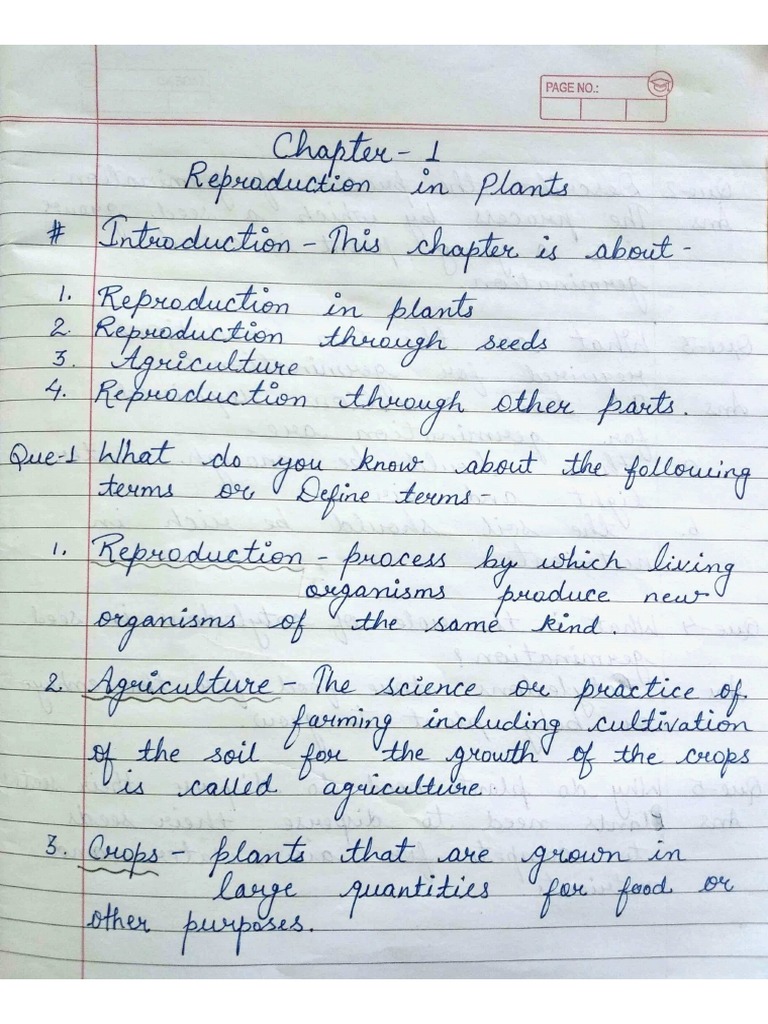 PAGE NO.:
Chapter - 1
Reproduction in Plants
# Introduction - This chapter is about -
1. Reproduction in plants
2. Reproduction through seeds
3. Agriculture
4. Reproduction through other parts.
Que-1 What do you know about the following
terms or Define terms -
1. Reproduction - process by which living
organisms produce new
organisms of the same kind.
2. Agriculture - The science or practice of
farming including cultivation
of the soil for the growth of the crops
is called agriculture.
3. Crops - plants that are grown in
large quantities for food or
other purposes.